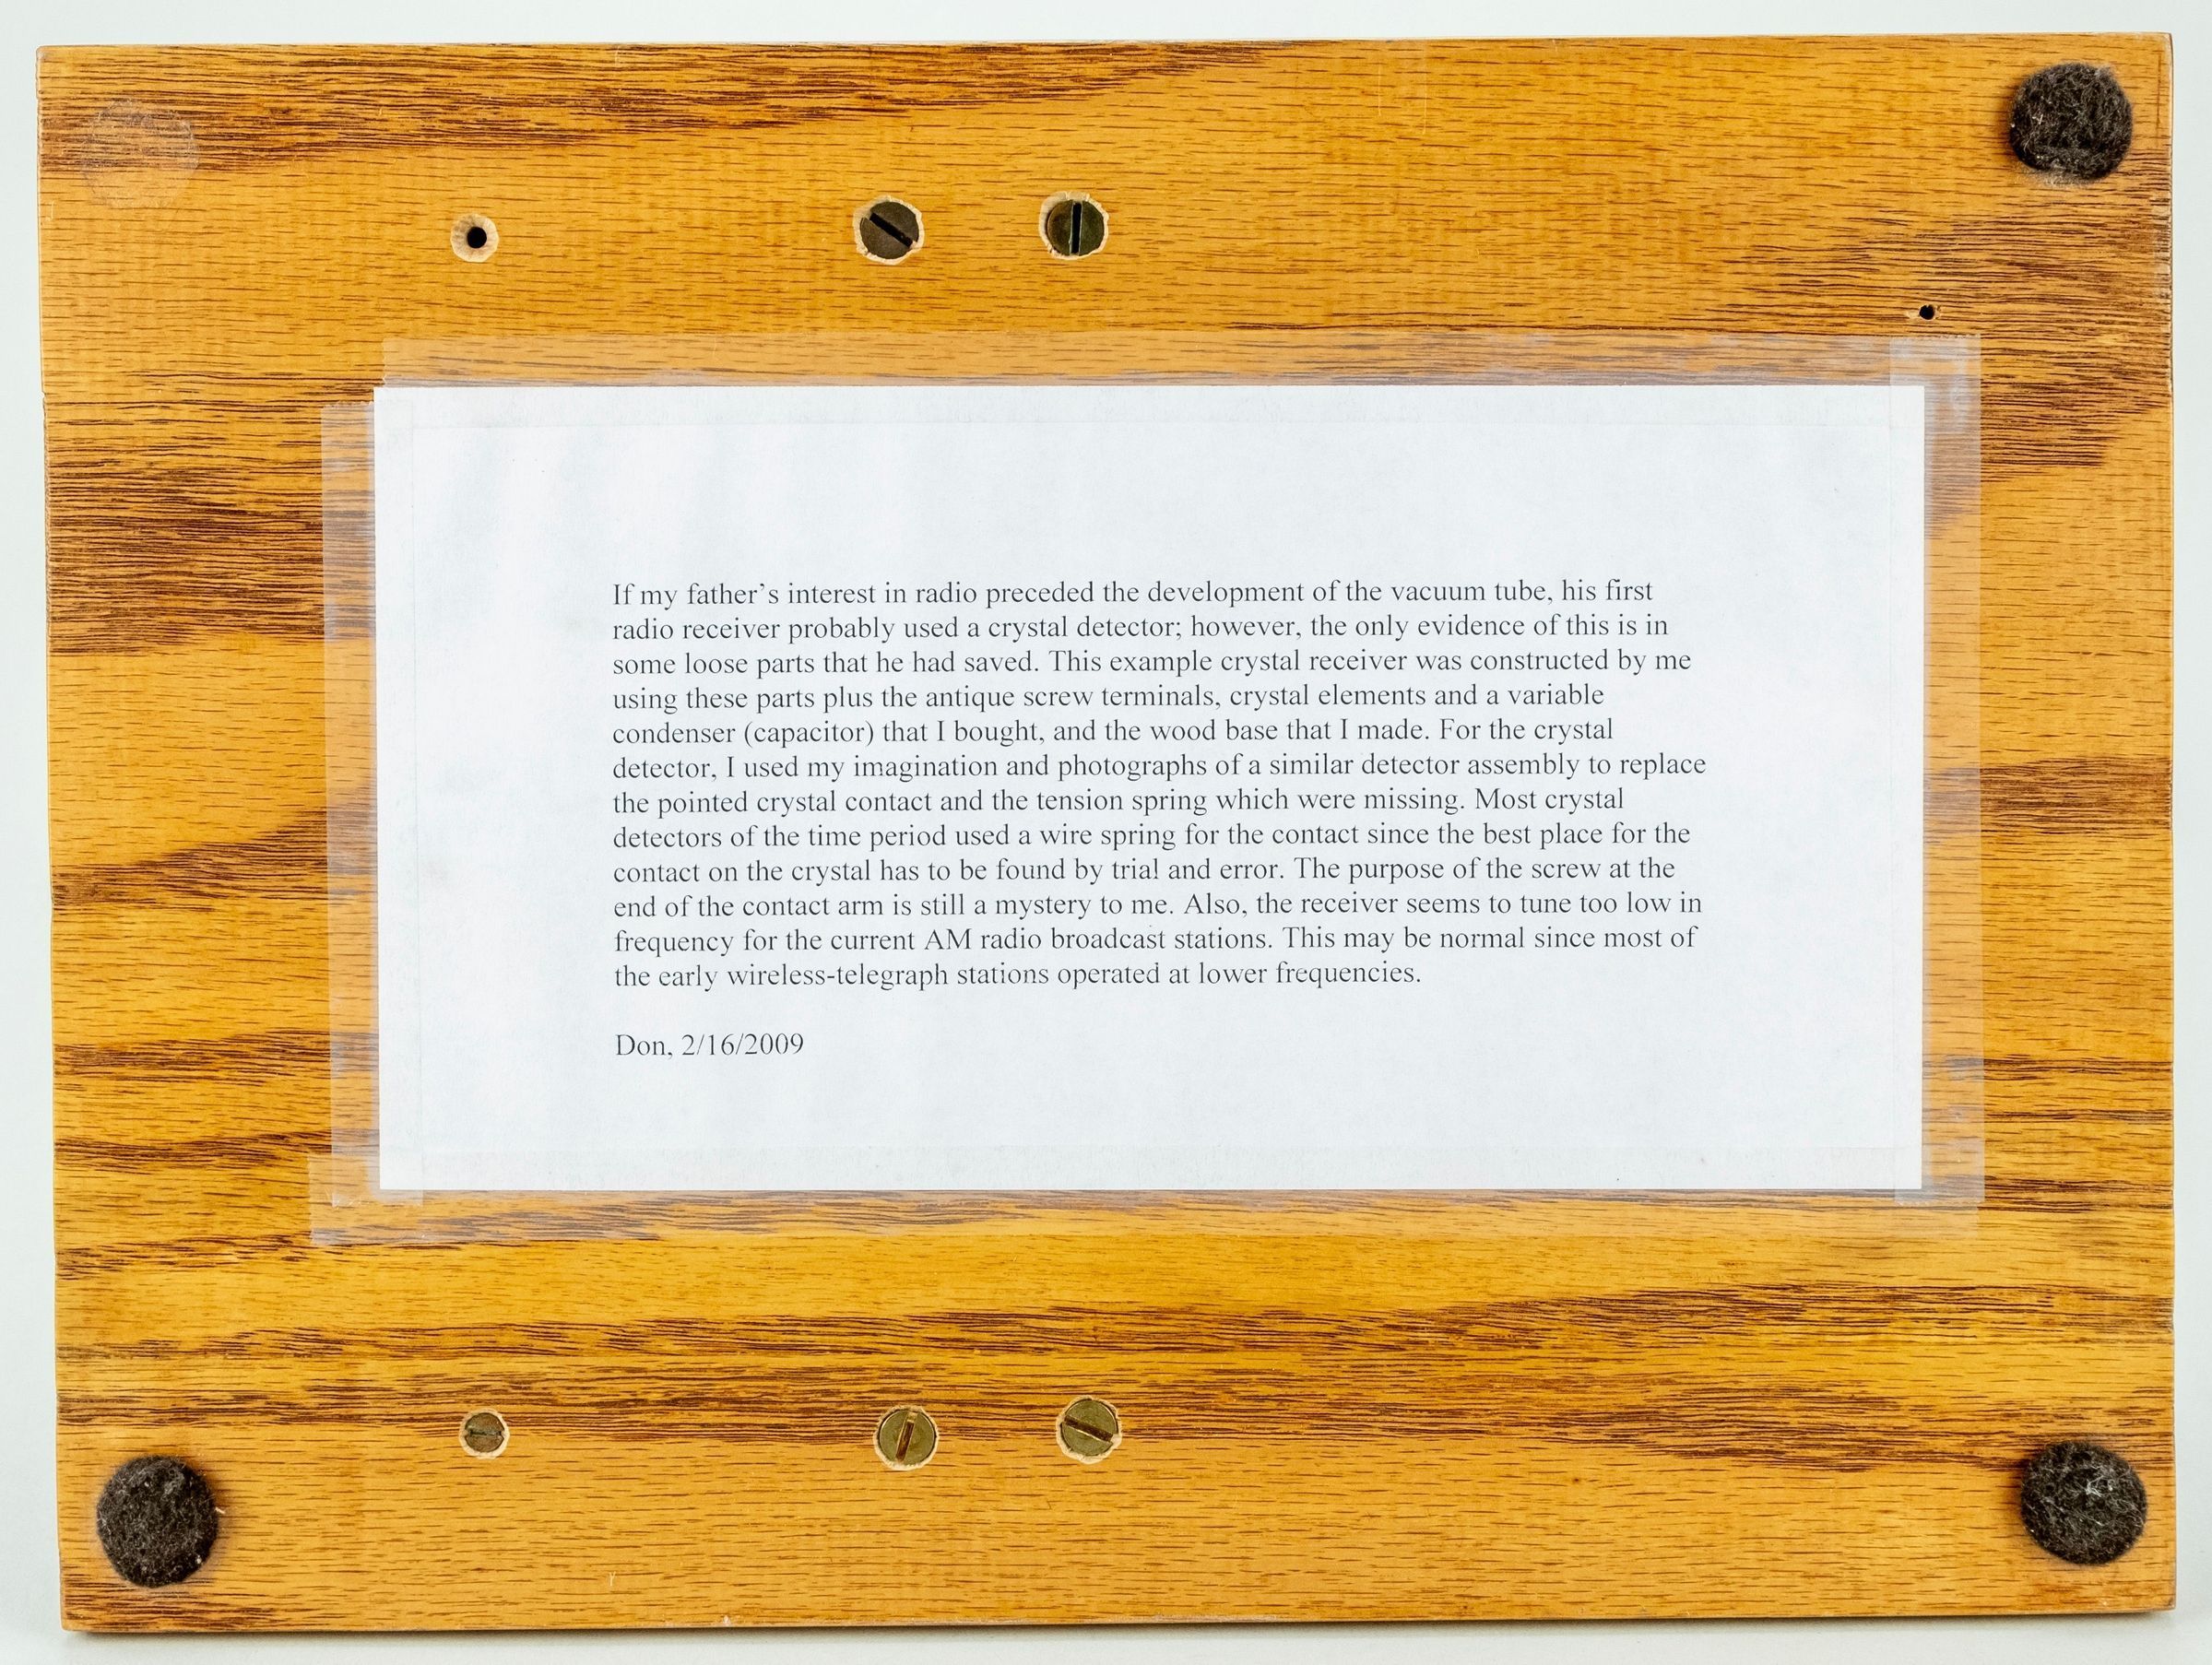 If my father’s interest in radio preceded the development of the vacuum tube, his first
radio receiver probably used a crystal detector; however, the only evidence of this is in
some loose parts that he had saved. This example crystal receiver was constructed by me
using these parts plus the antique screw terminals, crystal elements and a variable
condenser (capacitor) that I bought, and the wood base that I made. For the crystal
detector, I used my imagination and photographs of a similar detector assembly to replace
the pointed crystal contact and the tension spring which were missing. Most crystal
detectors of the time period used a wire spring for the contact since the best place for the
contact on the crystal has to be found by trial and error. The purpose of the screw at the
end of the contact arm is still a mystery to me. Also, the receiver seems to tune too low in
frequency for the current AM radio broadcast stations. This may be normal since most of
the early wireless-telegraph stations operated at lower frequencies.
Don, 2/16/2009